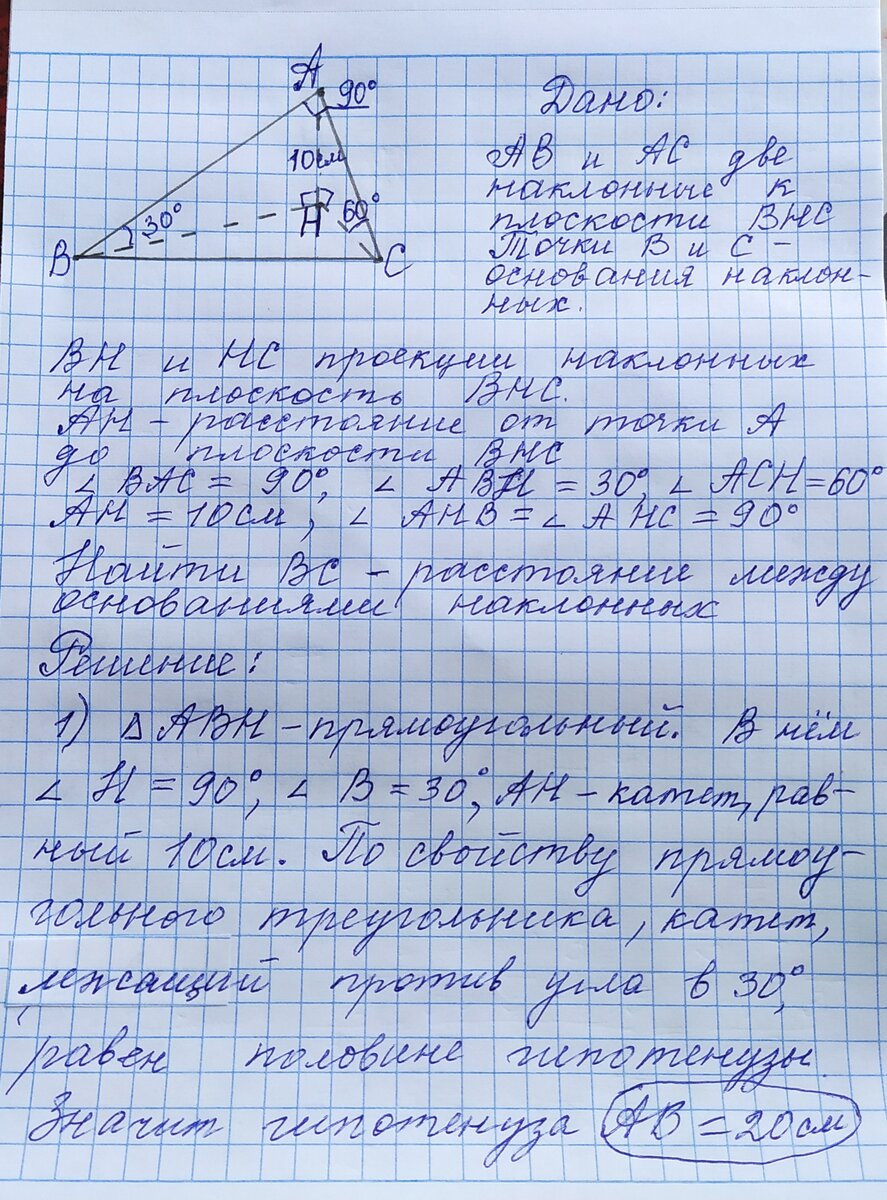 A
90°
10см
H
60°
30°
B
C
Дано:
AB и AC две
наклонные к
плоскости BHC
Точки B и C -
основания наклон-
ных.
BH и HC проекции наклонных
на плоскость BHC.
AH - расстояние от точки A
до плоскости BHC
∠ BAC = 90°, ∠ ABH = 30°, ∠ ACH = 60°
AH = 10см, ∠ AHB = ∠ AHC = 90°
Найти BC - расстояние между
основаниями наклонных
Решение:
1) △ ABH - прямоугольный. В нём
∠ H = 90°, ∠ B = 30°, AH - катет, рав-
ный 10см. По свойству прямоу-
гольного треугольника, катет,
лежащий против угла в 30°,
равен половине гипотенузы.
Значит гипотенуза AB = 20см